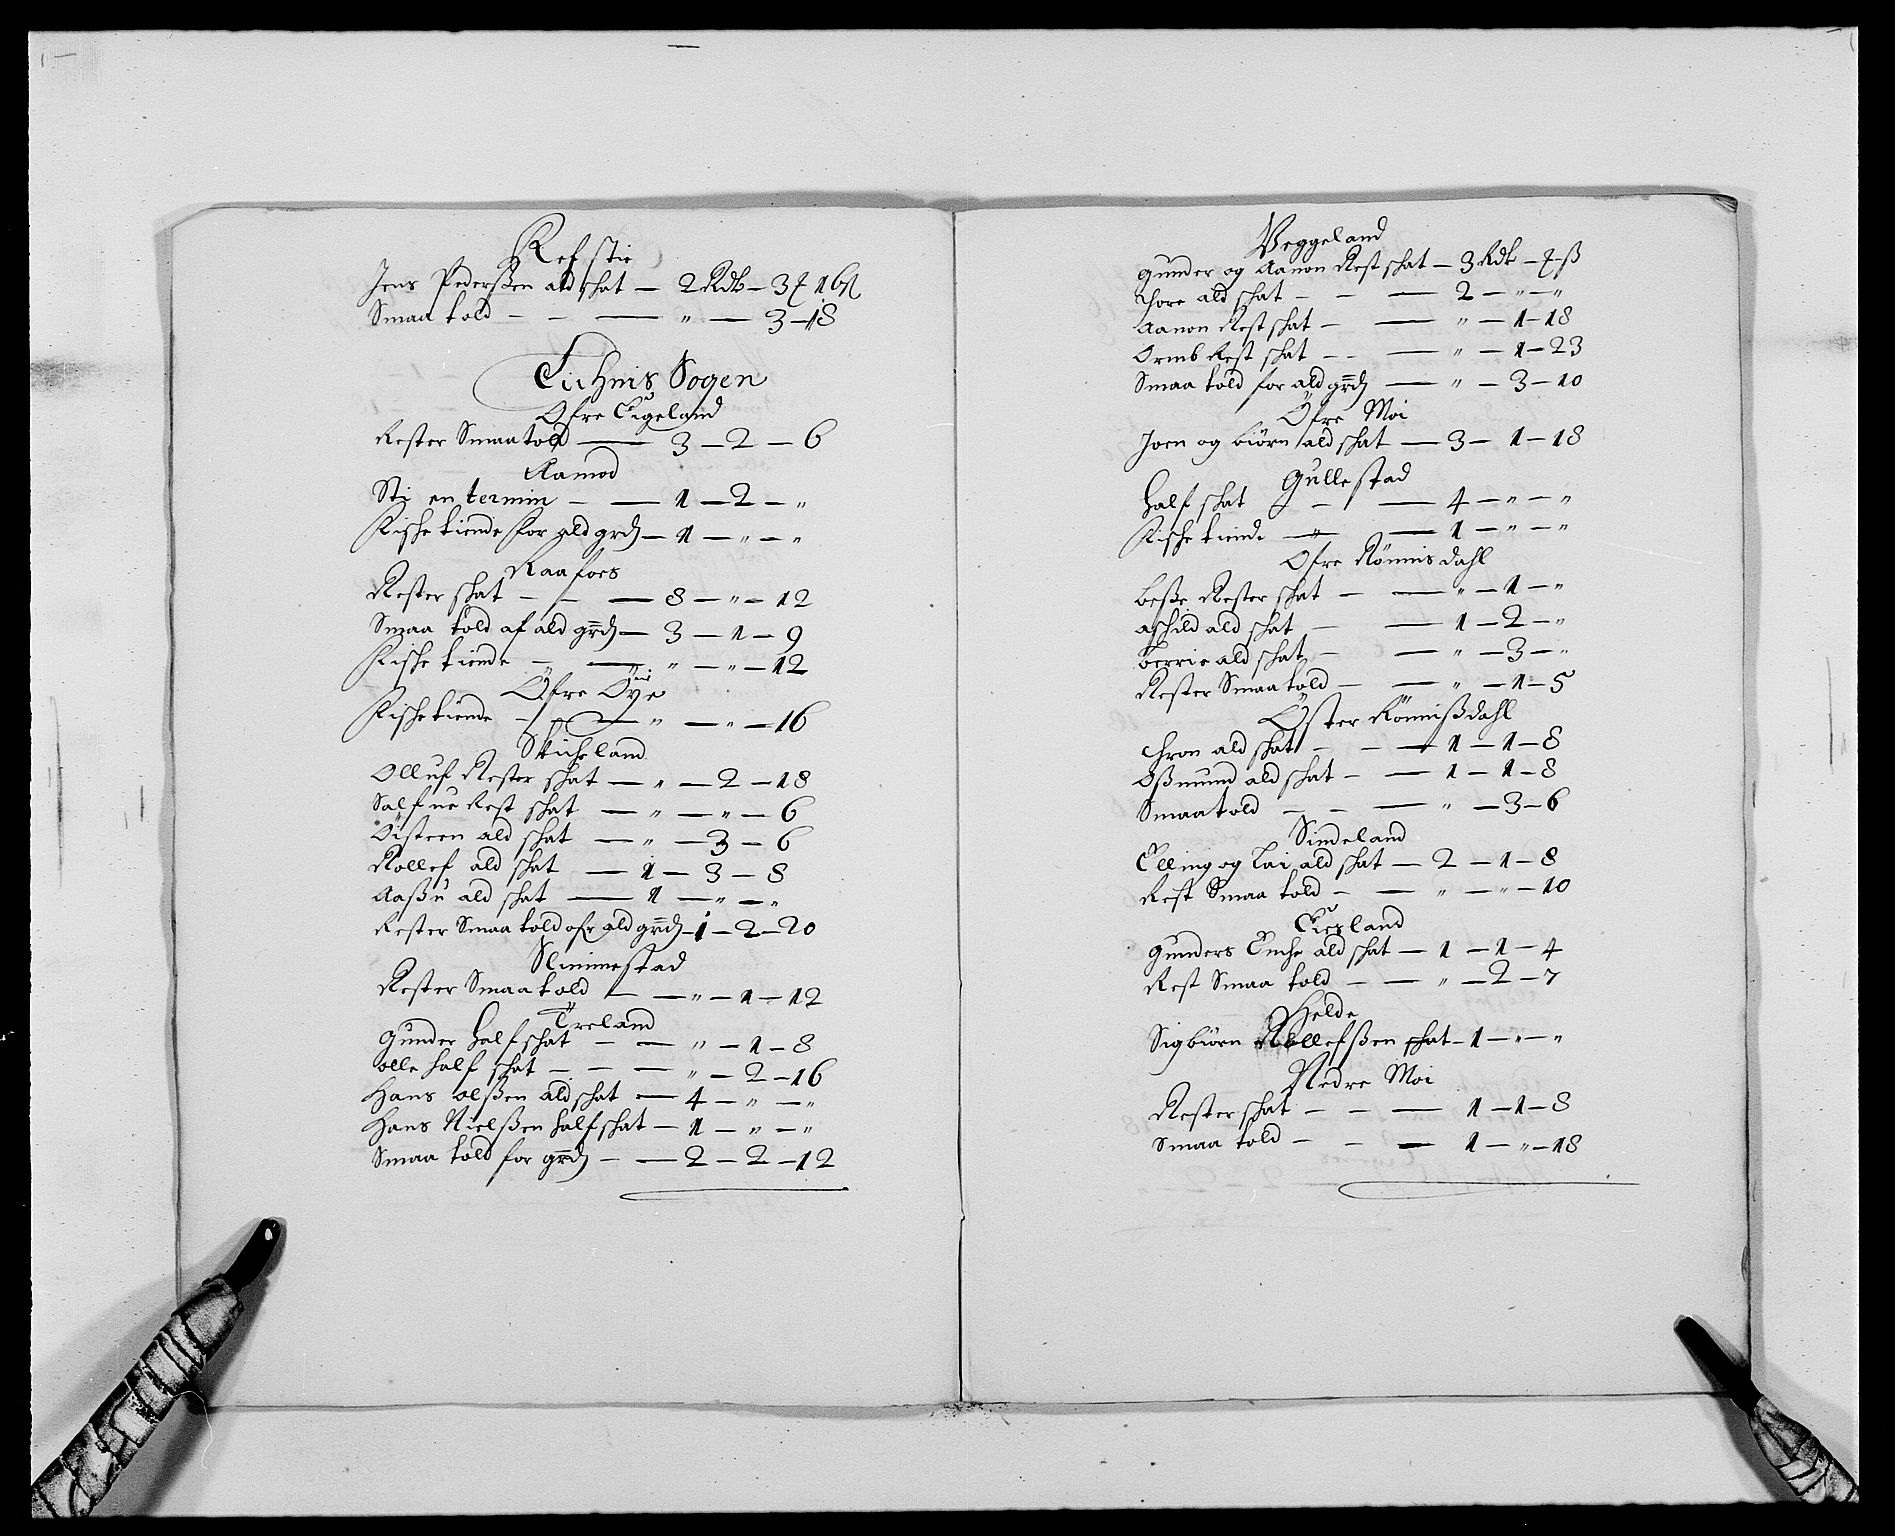 Refstie
Jens Pederßen ald schat — 2 Rdr — 3 ƺ 16 ß
Smaa told — — — " — 3 — 18
Fiehnis Sogen
Ofre Eigeland
Rester Smaa told — 3 — 2 — 6
Aamod
Sti en termin — — 1 — 2 — "
Fische tiende for ald grd — 1 — " — "
Raafoes
Rester schat — — — 8 — " — 12
Smaa told af ald grd — 3 — 1 — 9
Fische tiende — — " — " — 12
Öfre Öye
Fische tiende — — " — " — 16
Sticheland
Olluf Rester schat — " — 2 — 18
Salfue Rest schat — " — " — 6
Öisteen ald schat — " — 3 — 6
Rollef ald schat — 1 — 3 — 8
Aaßu ald schat — 1 — " — "
Rester Smaa told ofr ald grd — 1 — 2 — 20
Slimmestad
Rester Smaa told — — " — 1 — 12
Treland
Gunder Half schat — — " — 1 — 8
olle half schat — — — " — 2 — 16
Hans olßen ald schat — 4 — " — "
Hans Nielßen half schat — 1 — " — "
Smaa told for grd — — 2 — 2 — 12
Veggeland
Gunder og Aanon Rest schat — 3 Rdr — ƺ — ß
Thore ald schat — — — 2 — " — "
Aanon Rest schat — — " — 1 — 18
Ormb Rest schat — — — " — 1 — 23
Smaa told for ald grd — " — 3 — 10
Öfre Moi
Joen og biörn ald schat — 3 — 1 — 18
Gullestad
Half schat — — 4 — " — "
Fische tiende — — 1 — " — "
Ofre Rönnisdahl
beße Rester schat — — " — 1 — "
aschild ald schat — — 1 — 2 — "
berrie ald schat — — " — 3 — "
Rester Smaa told — — " — 1 — 5
Öster Rönnißdahl
Thron ald schat — — — 1 — 1 — 8
Oßmund ald schat — — 1 — 1 — 8
Smaa told — — — " — 3 — 6
Sindeland
Elling og Tai ald schat — 2 — 1 — 8
Rest Smaa told — — " — " — 10
Eiesland
Gunders Enche ald schat — 1 — 1 — 4
Rest Smaa told — — " — 2 — 7
Helde
Sigbiörn Rollefßen schat — 1 — " — "
Nedre Moi
Rester schat — — — 1 — 1 — 8
Smaa told — — — 1 — " — 18